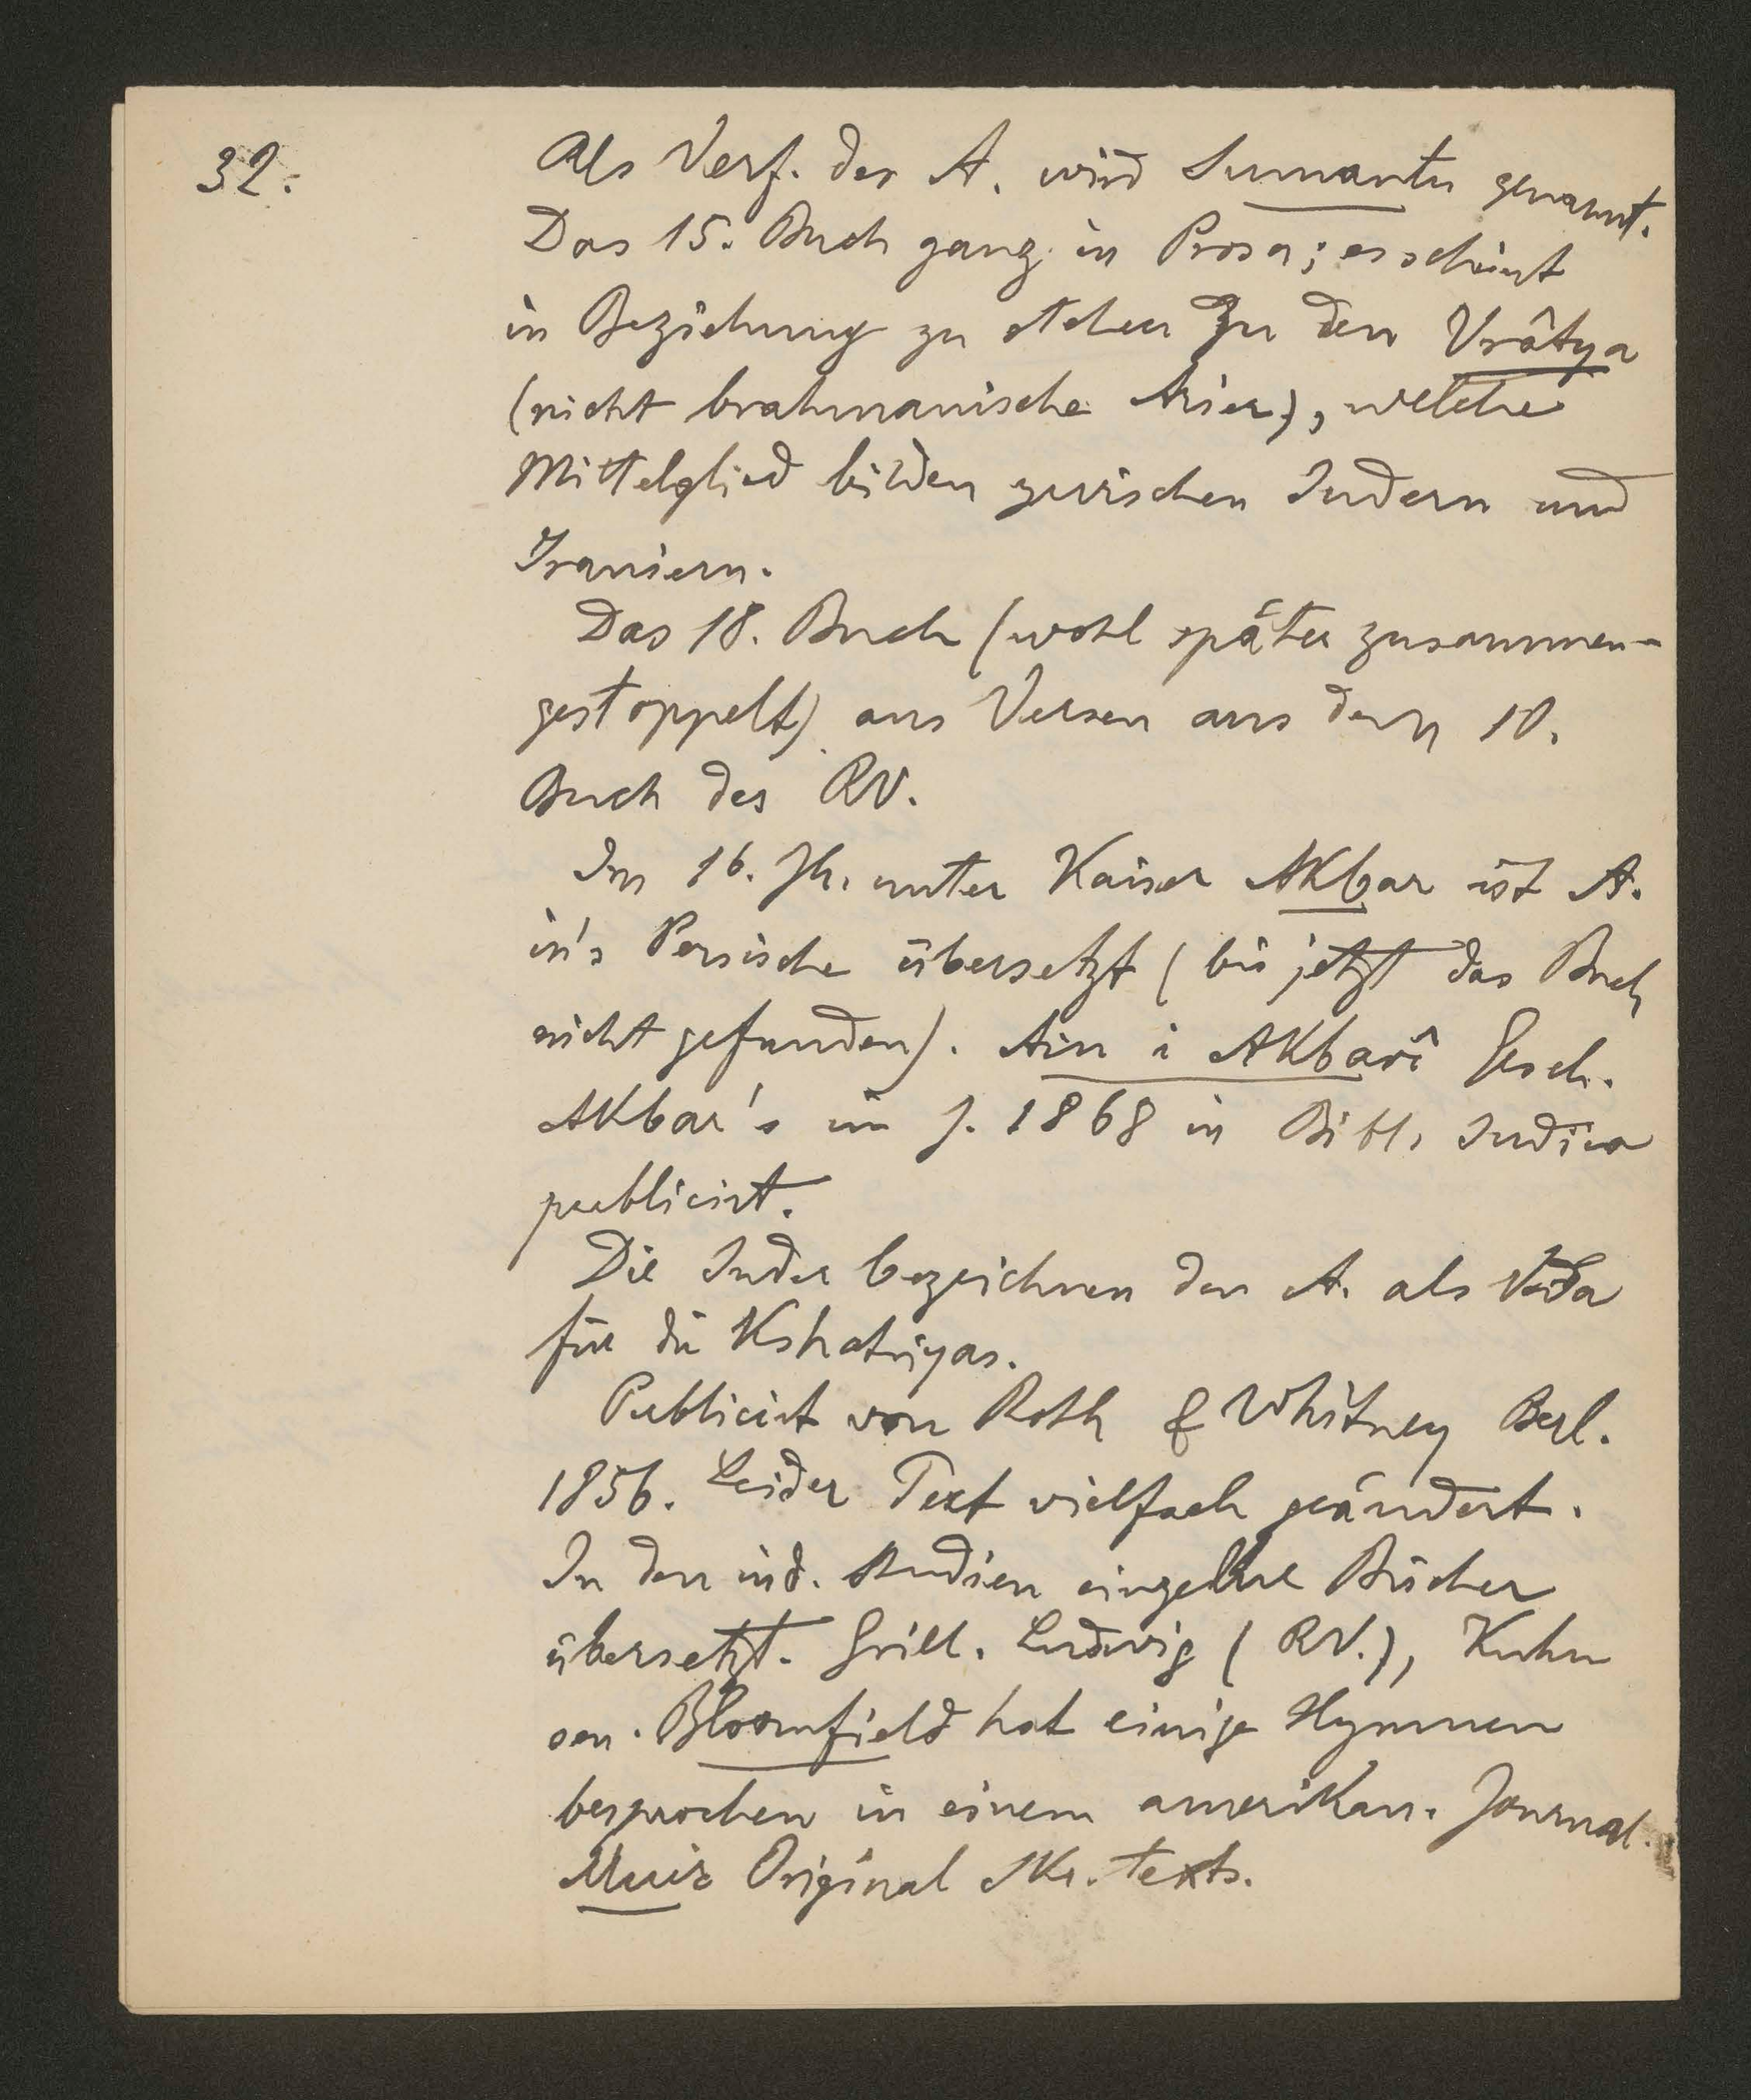 32.
Als Verf. des A. wird Sumantu genannt.
Das 15. Buch ganz in Prosa; es scheint
in Beziehung zu stehen zu den Vrâtya
(nicht brahmanische Arier), welche
Mittelglied bilden zwischen Indern und
Iraniern.
Das 18. Buch (wohl später zusammen-
gestoppelt) aus Versen aus dem 10.
Buch des RV.
Im 16. Jh. unter Kaiser Akbar ist A.
in's Persische übersetzt (bis jetzt das Buch
nicht gefunden). Ain i Akbarî Gesch.
Akbar's im J. 1868 in Bibl. Indica
publicirt.
Die Inder bezeichnen den A. als Veda
für die Kshatriyas.
Publicirt von Roth & Whitney Berl.
1856. Leider Text vielfach geändert.
In den ind. Studien einzelne Bücher
übersetzt. Grill. Ludwig (RV.), Kuhn
sen. Bloomfield hat einige Hymnen
besprochen in einem amerikan. Journal.
Muir Original Skr. texts.